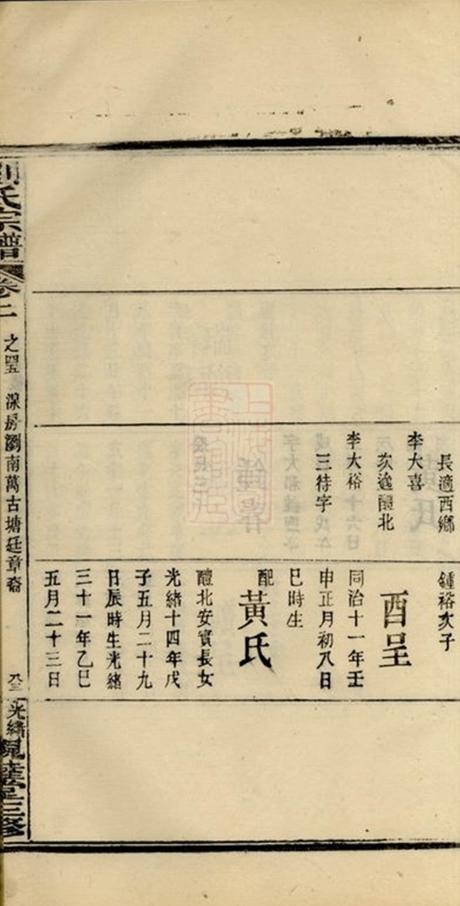 長適西鄉
李大喜
次適醴北
李大裕
三待字
鍾裕次子
酉呈
同治十一年壬
申正月初八日
巳時生
配黃氏
醴北安實長女
光緒十四年戊
子五月二十九
日辰時生光緒
三十一年乙巳
五月二十三日
劉氏宗譜 卷二 之 房瀏南萬古塘廷章裔 光緒 堂三修